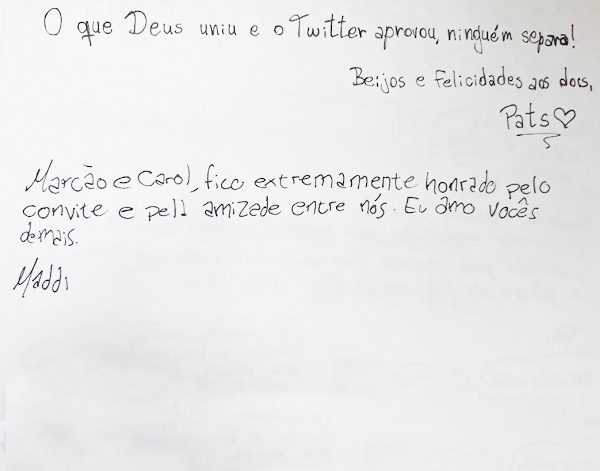 O que Deus uniu e o Twitter aprovou, ninguém separa!
Beijos e Felicidades aos dois,
Pats♡
Marcão e Carol, fico extremamente honrado pelo
convite e pela amizade entre nós. Eu amo vocês
demais.
Maddi